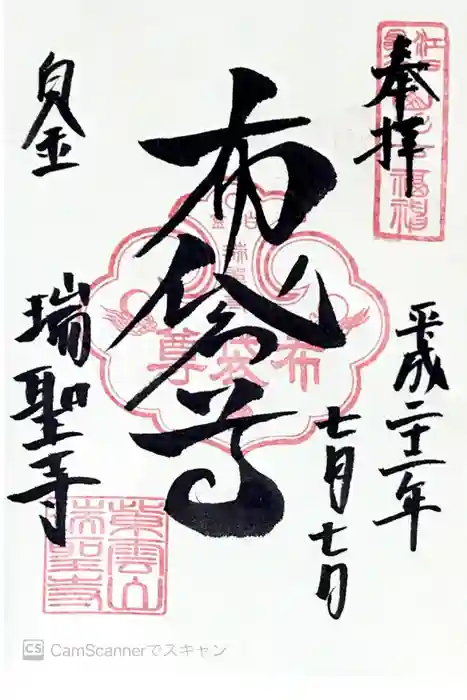 奉拝
平成二十二年
七月七日
布袋尊
白金
瑞聖寺
白金
瑞聖寺
布袋尊
紫雲山
瑞聖寺
CS CamScannerでスキャン